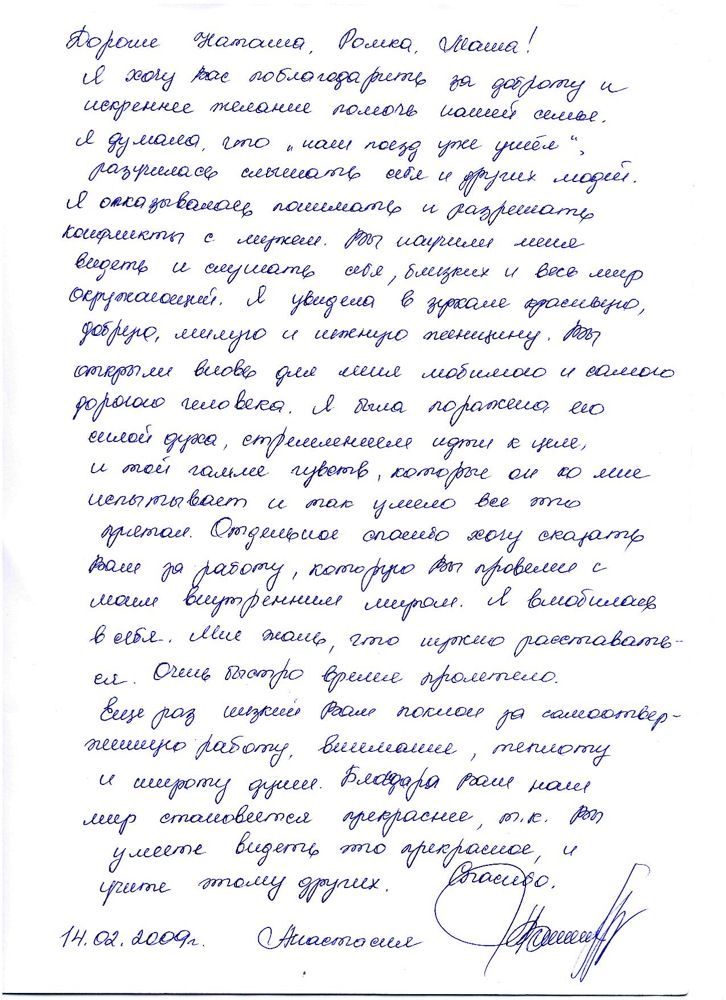 Дорогие Наташа, Ромка, Маша!
Я хочу вас поблагодарить за доброту и
искреннее желание помочь нашей семье.
Я думала, что „наш поезд уже ушёл“,
разучилась слышать себя и других людей.
Я отказывалась понимать и разрешать
конфликты с мужем. Вы научили меня
видеть и слушать себя, близких и весь мир
окружающий. Я увидела в зеркале красивую,
добрую, милую и нежную женщину. Вы
открыли вновь для меня любимого и самого
дорогого человека. Я была поражена его
силой духа, стремлением идти к цели,
и той гамме чувств, которые он ко мне
испытывает и так умело все это
прятал. Отдельное спасибо хочу сказать
Вам за работу, которую Вы провели с
моим внутренним миром. Я влюбилась
в себя. Мне жаль, что нужно расставать-
ся. Очень быстро время пролетело.
Еще раз низкий Вам поклон за самоотвер-
женную работу, внимание, теплоту
и широту души. Благодаря Вам наш
мир становится прекраснее, т.к. Вы
умеете видеть это прекрасное, и
учите этому других. Спасибо.
14.02.2009г. Анастасия